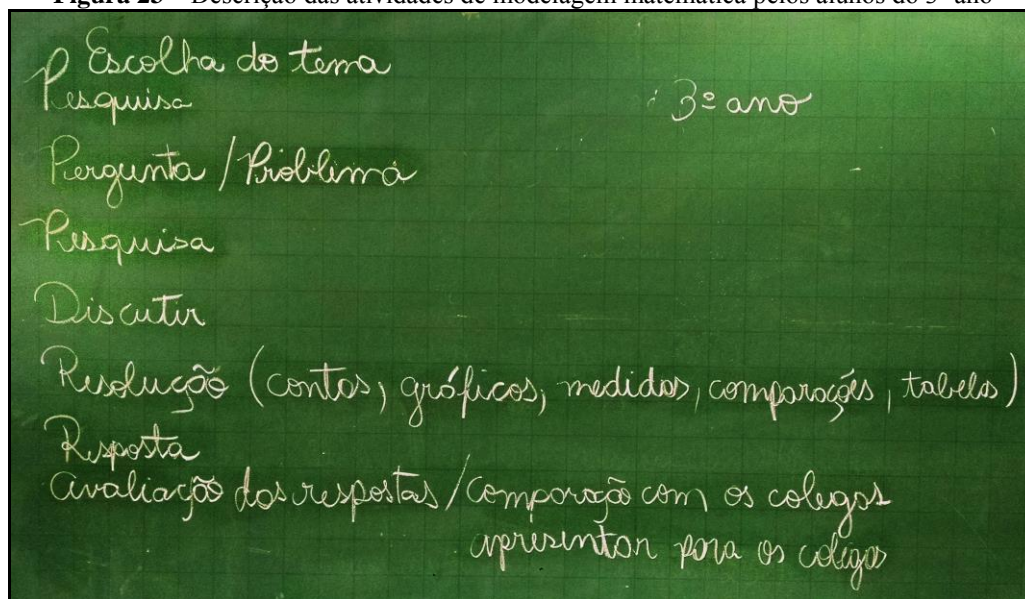 Figura 25 – Descrição das atividades de modelagem matemática pelos alunos do 3º ano
Escolha do tema
Pesquisa
3º ano
Pergunta / Problema
Pesquisa
Discutir
Resolução (contas, gráficos, medidas, comparações, tabelas)
Resposta
Avaliação das respostas / Comparação com os colegas
apresentar para os colegas